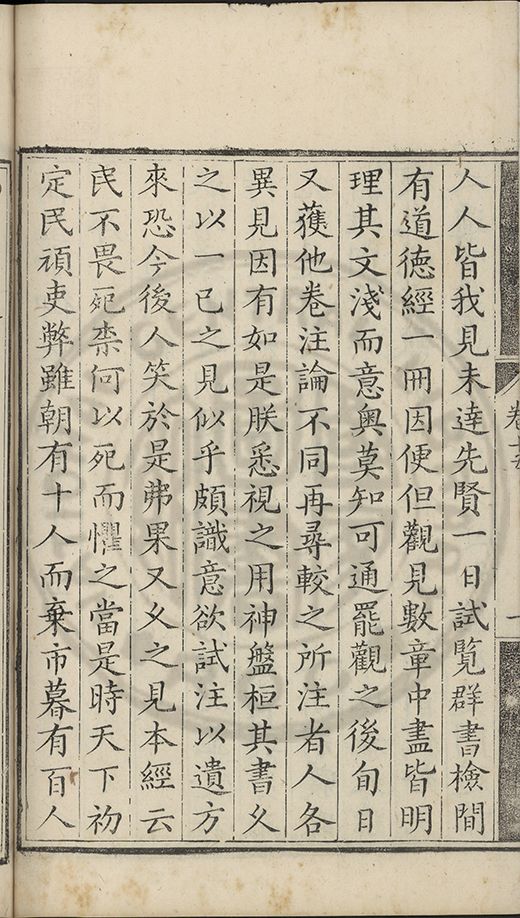 人人皆我見未達先賢一日試覧群書檢間
有道德經一冊因便但觀見數章中盡皆明
理其文淺而意奥莫知可通罷觀之後旬日
又獲他卷注論不同再尋較之所注者人各
異見因有如是朕悉視之用神盤桓其書久
之以一己之見似乎頗識意欲試注以遺方
來恐今後人笑於是弗果又久之見本經云
民不畏死柰何以死而懼之當是時天下初
定民頑吏弊雖朝有十人而棄市暮有百人